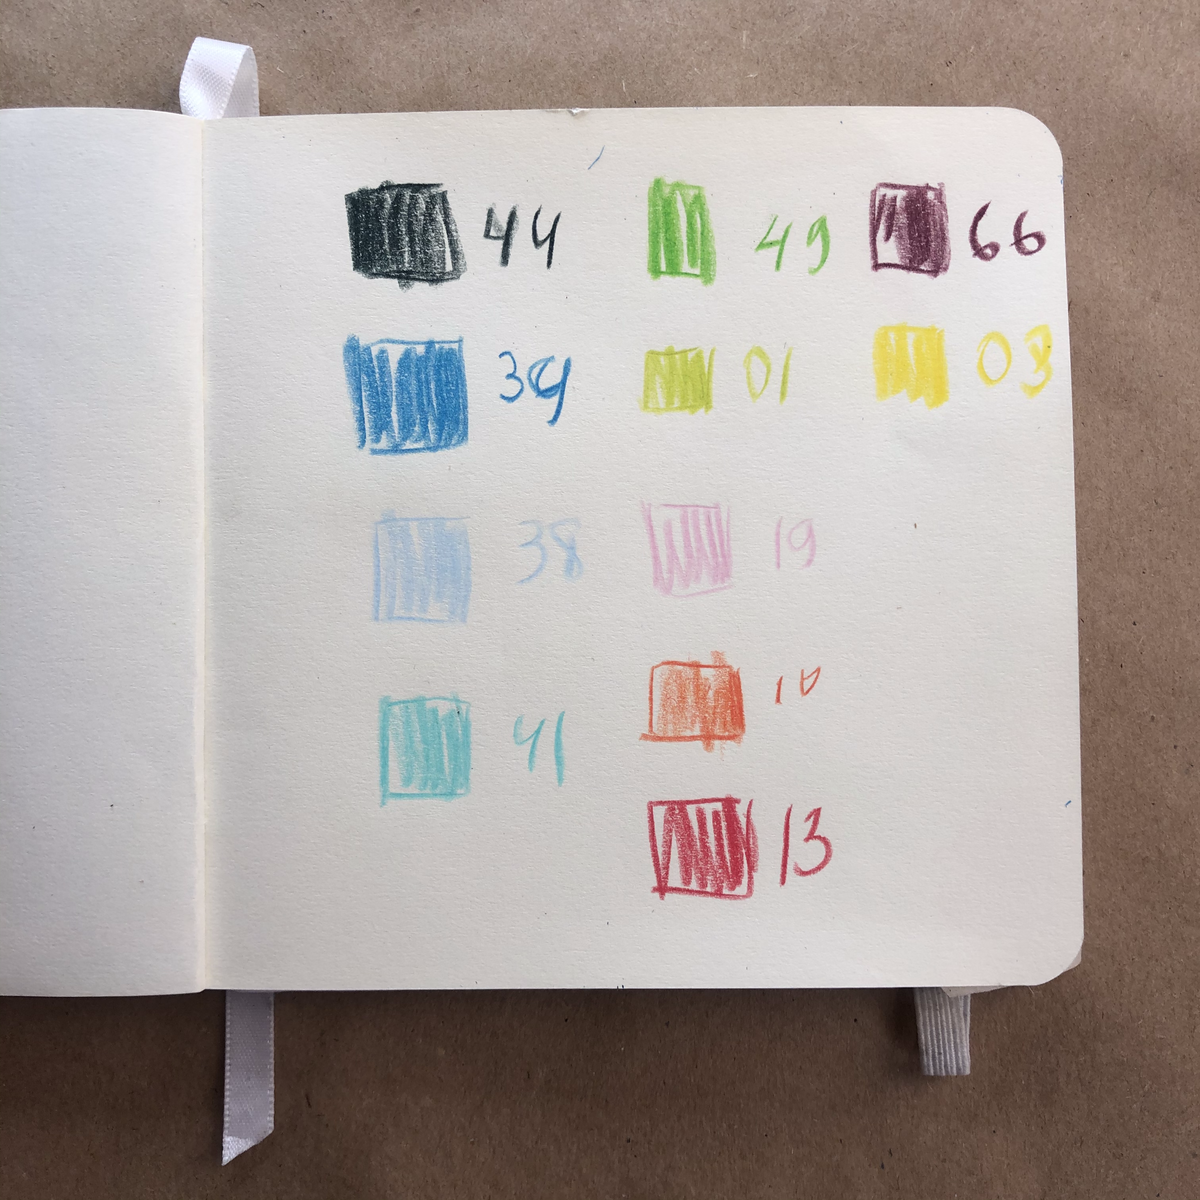 44 49 66
39 01 03
38 19
10
41
13